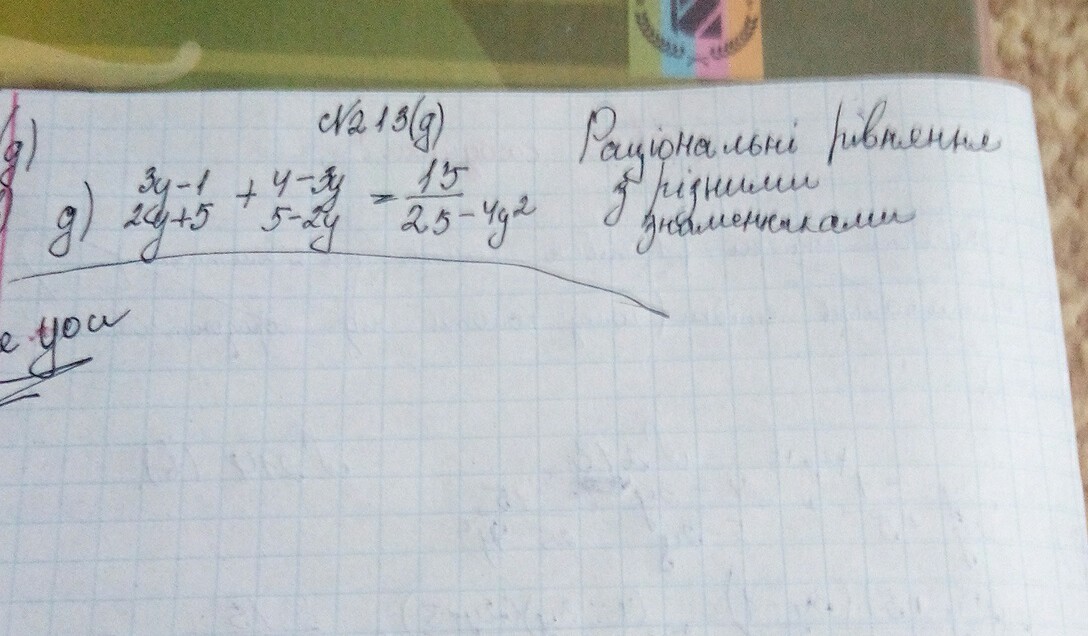 g)
№213(g)
Раціональні рівняння
з рідними
знаменниками
g) 3y-1/2y+5 + 4-3y/5-2y = 15/25-4y²
e you